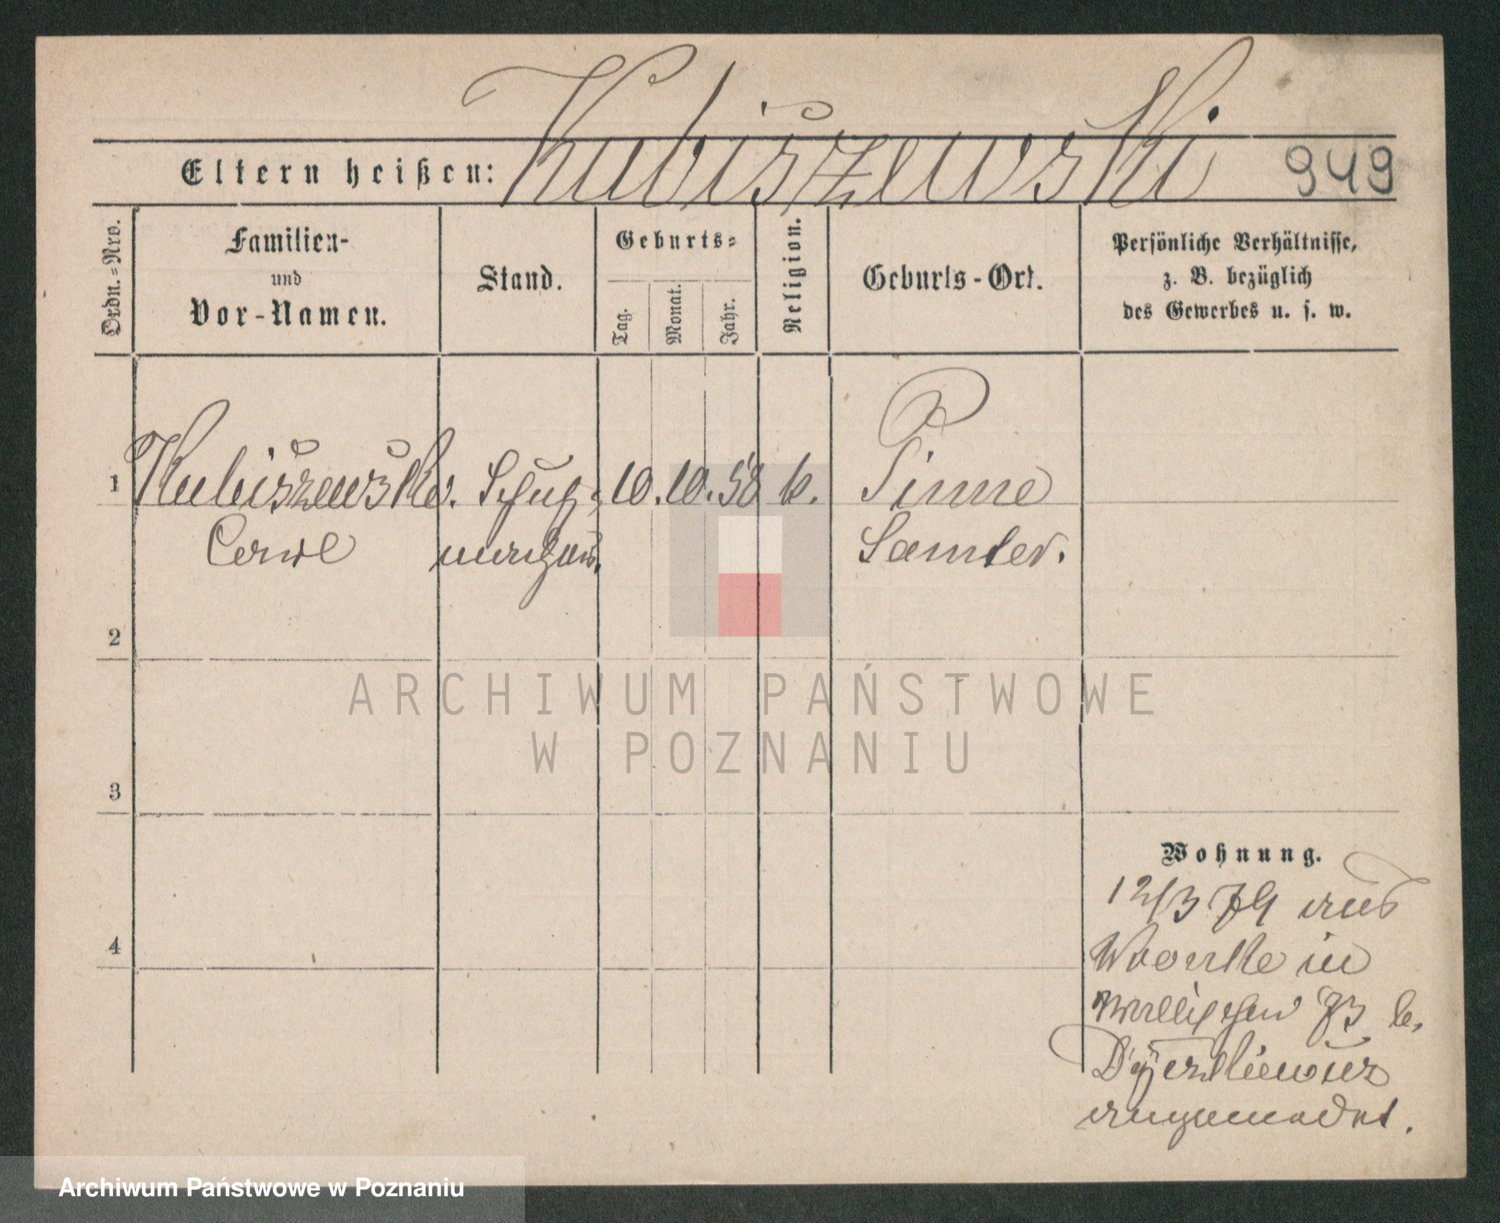 Kubiszewski
Eltern heißen:
949
Ordn.-Nro.
Familien-
und
Vor-Namen.
Stand.
Geburts-
Tag.
Monat.
Jahr.
Religion.
Geburts-Ort.
Persönliche Verhältnisse,
z. B. bezüglich
des Gewerbes u. s. w.
1
Kubiszewski. Schuh- 10. 10. 58 k. Pinne
Carl macher. Samter.
2
ARCHIWUM PAŃSTWOWE
W POZNANIU
3
Wohnung.
12/3 79 aus
Wronke in
Wallischei 73 b.
angemeldet.
4
Archiwum Państwowe w Poznaniu